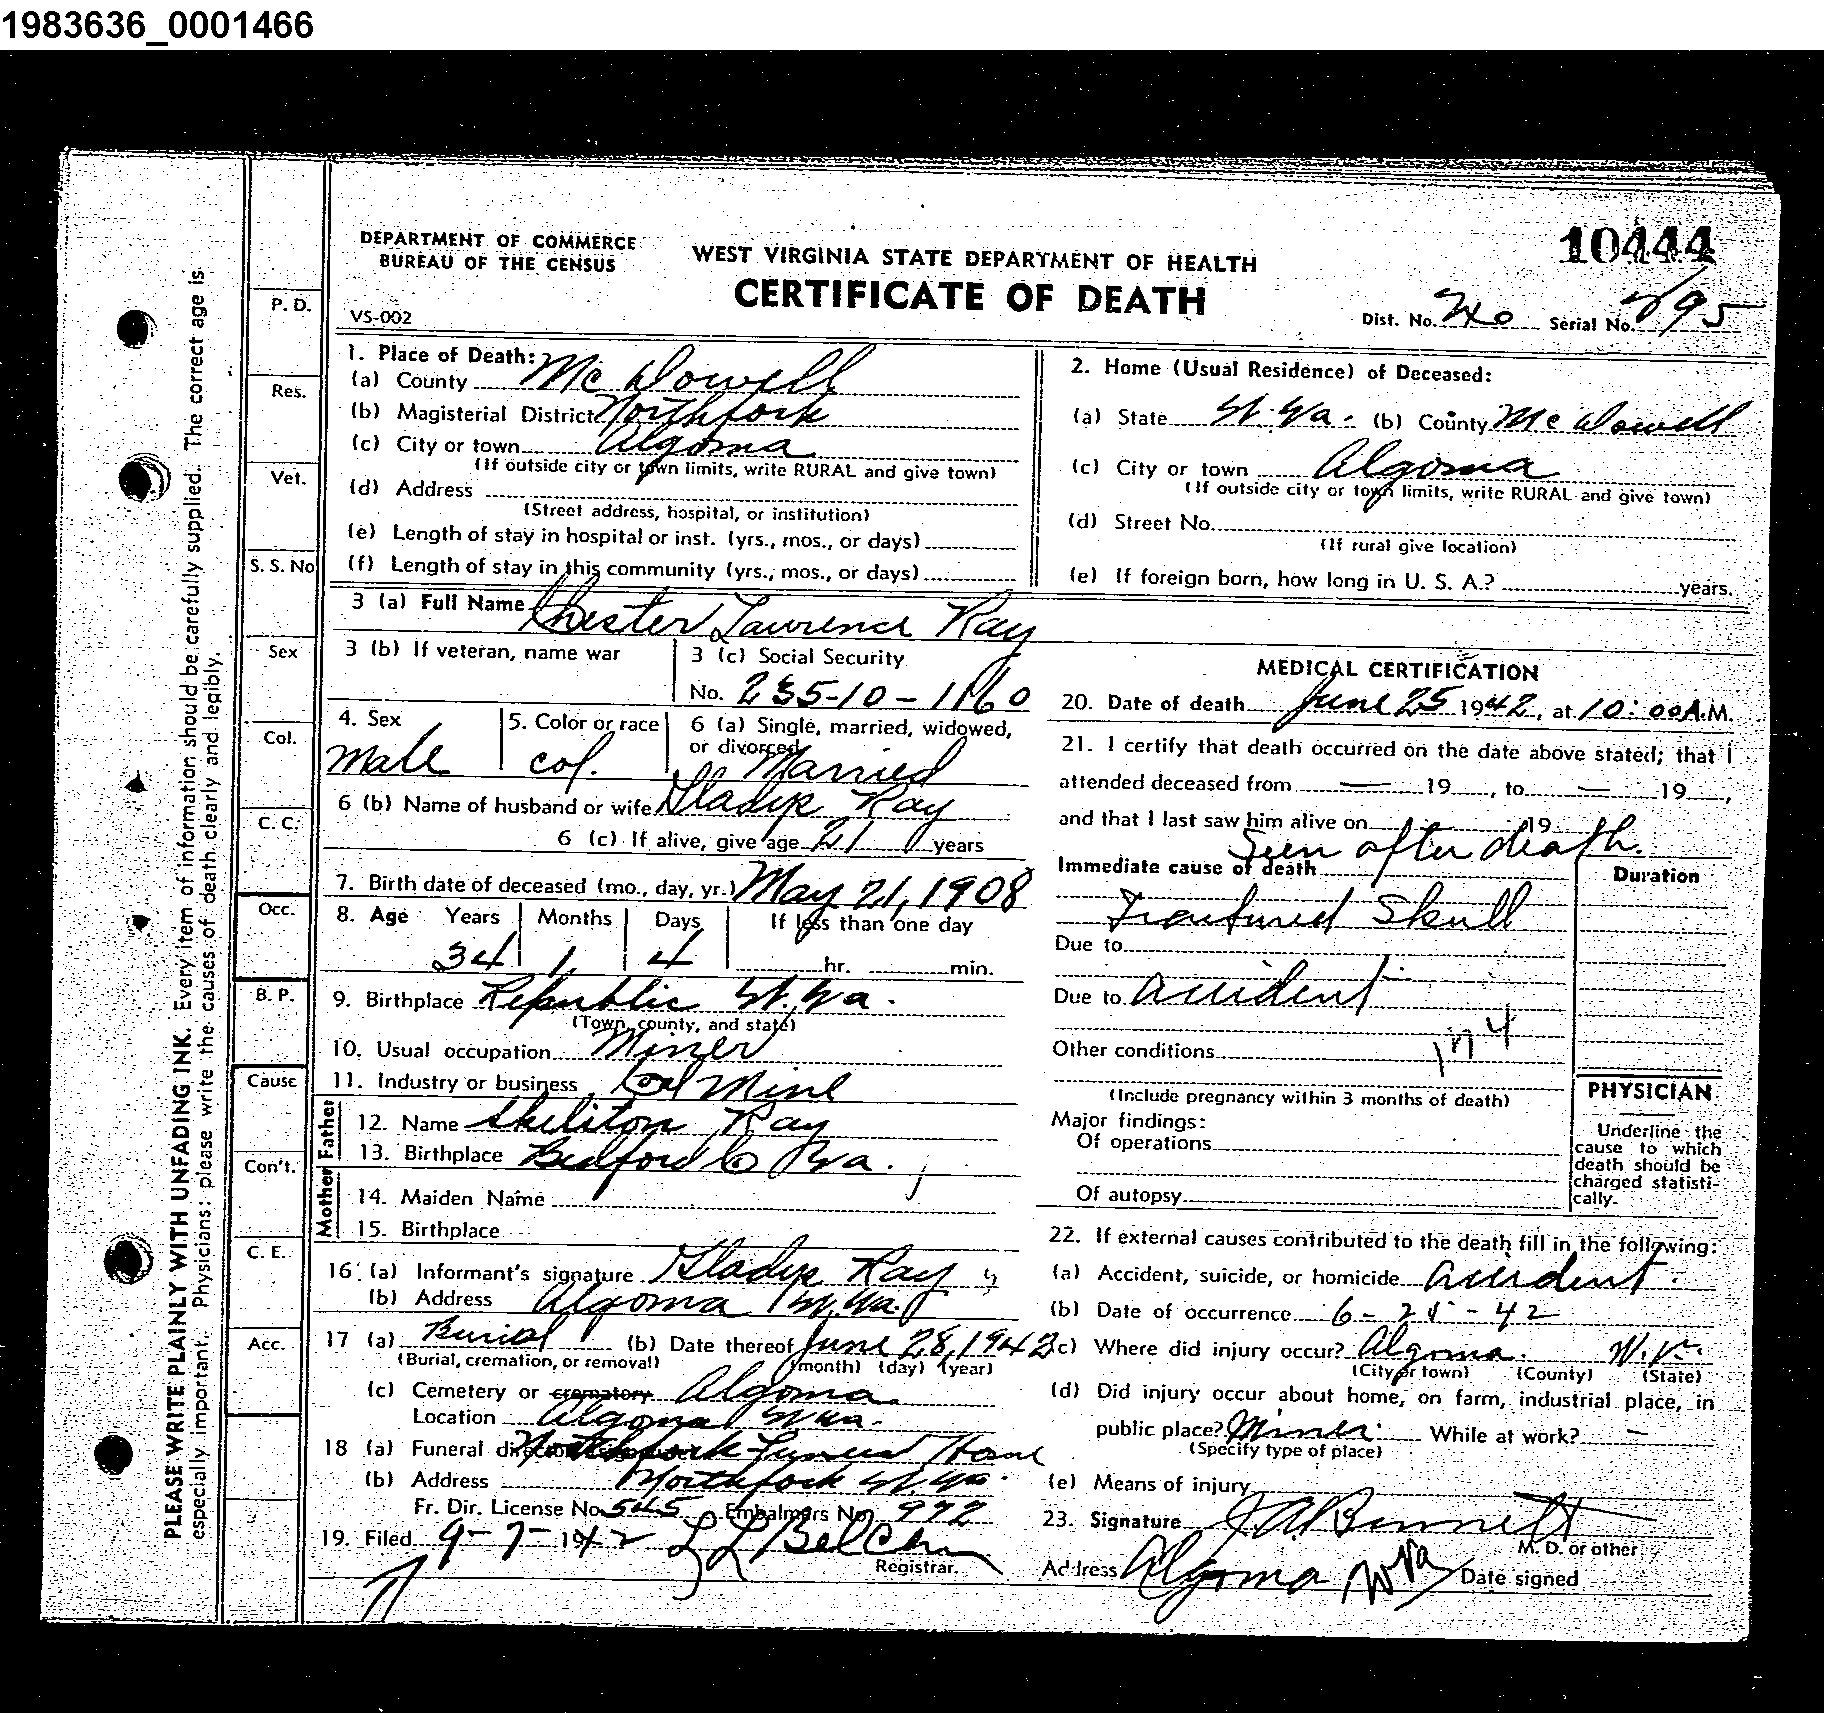 1983636_0001466
DEPARTMENT OF COMMERCE
BUREAU OF THE CENSUS
VS-002
WEST VIRGINIA STATE DEPARTMENT OF HEALTH
CERTIFICATE OF DEATH
10444
Dist. No. 240 Serial No. 295
1. Place of Death:
(a) County McDowell
(b) Magisterial District Northfork
(c) City or town Algoma
(If outside city or town limits, write RURAL and give town)
(d) Address
(Street address, hospital, or institution)
(e) Length of stay in hospital or inst. (yrs., mos., or days)
(f) Length of stay in this community (yrs., mos., or days)
2. Home (Usual Residence) of Deceased:
(a) State W. Va. (b) County McDowell
(c) City or town Algoma
(If outside city or town limits, write RURAL and give town)
(d) Street No.
(If rural give location)
(e) If foreign born, how long in U. S. A.? years.
3 (a) Full Name Chester Lawrence Ray
3 (b) If veteran, name war
3 (c) Social Security
No. 235-10-1160
4. Sex
Male
5. Color or race
col.
6 (a) Single, married, widowed,
or divorced
Married
6 (b) Name of husband or wife Gladys Ray
6 (c) If alive, give age 21 years
7. Birth date of deceased (mo., day, yr.) May 21, 1908
8. Age Years Months Days If less than one day
34 1 4 hr. min.
9. Birthplace Republic W. Va.
(Town, county, and state)
10. Usual occupation Miner
11. Industry or business Coal Mine
Father
12. Name Skeliton Ray
13. Birthplace Bedford Co Va.
Mother
14. Maiden Name
15. Birthplace
16. (a) Informant's signature Gladys Ray
(b) Address Algoma W. Va.
17 (a) Burial (b) Date thereof June 28, 1942
(Burial, cremation, or removal) (month) (day) (year)
(c) Cemetery or crematory Algoma
Location Algoma W Va.
18 (a) Funeral director Northfork Funeral Home
(b) Address Northfork W. Va.
Fr. Dir. License No. 545 Embalmers No. 972
19. Filed 9-7-1942 L L Belcher
Registrar.
MEDICAL CERTIFICATION
20. Date of death June 25 1942, at 10:00 A.M.
21. I certify that death occurred on the date above stated; that I
attended deceased from — 19 , to — 19 ,
and that I last saw him alive on 19
Seen after death.
Immediate cause of death
Duration
Fractured Skull
Due to
Due to accident
174
Other conditions
(Include pregnancy within 3 months of death)
Major findings:
Of operations
Of autopsy
PHYSICIAN
Underline the
cause to which
death should be
charged statisti-
cally.
22. If external causes contributed to the death fill in the following:
(a) Accident, suicide, or homicide accident.
(b) Date of occurrence 6-25-42
(c) Where did injury occur? Algoma. W. Va.
(City or town) (County) (State)
(d) Did injury occur about home, on farm, industrial place, in
public place? Miner. While at work? —
(Specify type of place)
(e) Means of injury
23. Signature J A Bennett
M. D. or other
Address Algoma W Va Date signed
P. D.
Res.
Vet.
S. S. No
Sex
Col.
C. C.
Occ.
B. P.
Cause
Con't.
C. E.
Acc.
PLEASE WRITE PLAINLY WITH UNFADING INK. Every item of information should be carefully supplied. The correct age is
especially important. Physicians: please write the causes of death clearly and legibly.